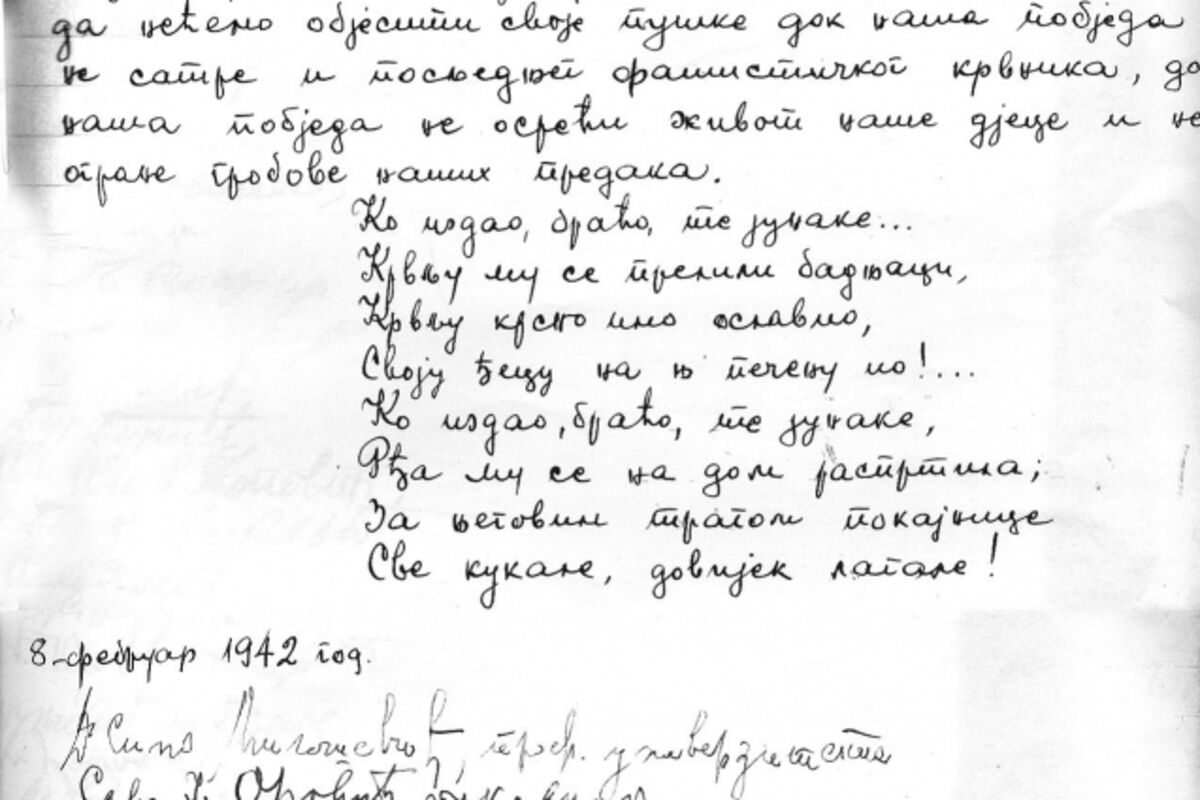 да нећемо објесити своје пушке док наша побједа
не сатре и посљедњег фашистичког крвника, до
наша побједа не осрећи живот наше дјеце и не
огране гробове наших предака.
Ко издао, браћо, те јунаке...
Крвљу му се прелили бадњаци,
Крвљу крсно име ославио,
Своју ђецу на њ печену ио!...
Ко издао, браћо, те јунаке,
Рђа му се на дом распртила;
За његовим трагом покајнице
Све кукале, довијек лагале!
8-фебруар 1942 год.
Др Симо Милошевић, проф. универзитета